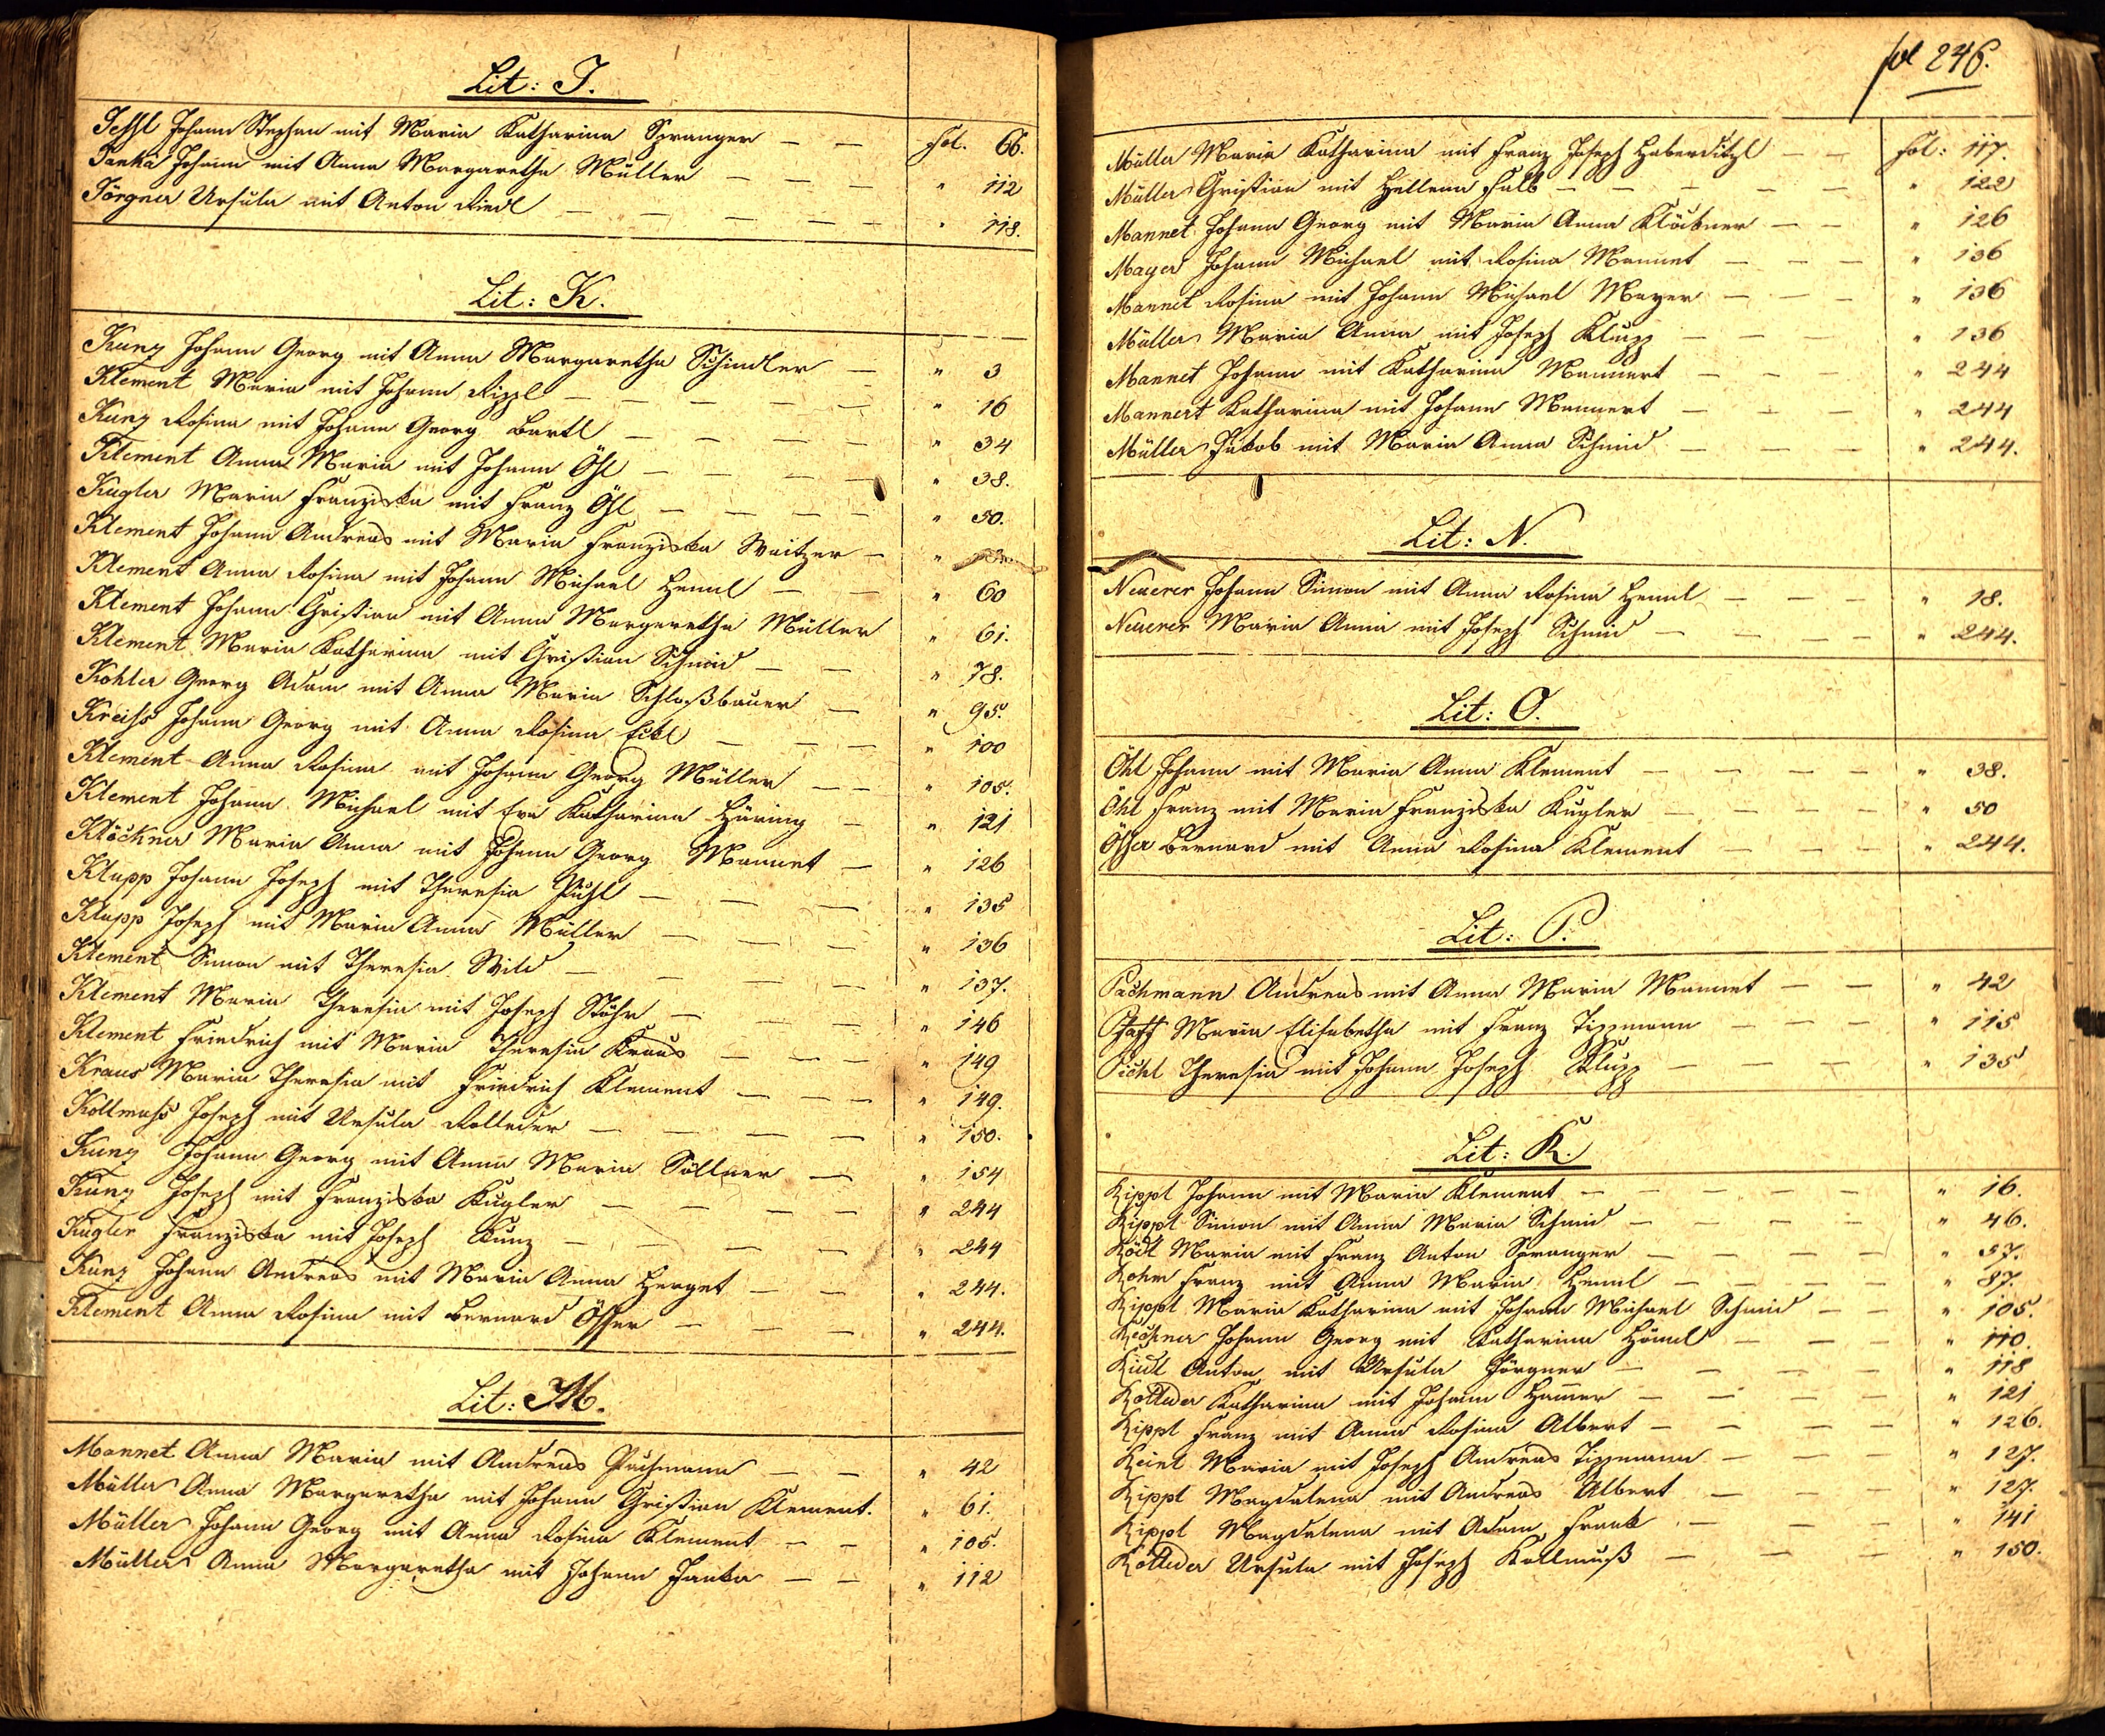 Lit: J.
Jessl Johann Stephan mit Maria Katharina Spranger — — fol. 66.
Janka Johann mit Anna Margaretha Müller — — — " 112
Jörgner Ursula mit Anton Riedl — — — — — " 118.
Lit: K.
Kunz Johann Georg mit Anna Margaretha Schindler — " 3
Klement Maria mit Johann Rippl — — — — — " 16
Kunz Rosina mit Johann Georg Bartl — — — — " 34
Klement Anna Maria mit Johann Öhl — — — — " 38.
Kugler Maria Franziska mit Franz Öhl — — — — " 50.
Klement Johann Andreas mit Maria Franziska Waitzer — "
Klement Anna Rosina mit Johann Michael Heml — — " 60
Klement Johann Christian mit Anna Margaretha Müller " 61.
Klement Maria Katharina mit Christian Schmid — — " 78.
Kohler Georg Adam mit Anna Maria Schloßbauer — " 95.
Kreiss Johann Georg mit Anna Rosina Eckl — — — " 100
Klement Anna Rosina mit Johann Georg Müller — — " 105.
Klement Johann Michael mit Eva Katharina Häring — " 121
Klöckner Maria Anna mit Johann Georg Mannet — " 126
Klupp Johann Joseph mit Theresia Pichl — — — " 135
Klupp Joseph mit Maria Anna Müller — — — " 136
Klement Simon mit Theresia Wild — — — — " 137.
Klement Maria Theresia mit Joseph Stöhr — — — " 146
Klement Friedrich mit Maria Theresia Kraus — — — " 149
Kraus Maria Theresia mit Friedrich Klement — — — " 149.
Kollmuss Joseph mit Ursula Rolleder — — — — " 150.
Kunz Johann Georg mit Anna Maria Söllner — " 154
Kunz Joseph mit Franziska Kugler — — — — " 244
Kugler Franziska mit Joseph Kunz — — — — " 244
Kunz Johann Andreas mit Maria Anna Herget — — " 244.
Klement Anna Rosina mit Bernard Össer — — — " 244.
Lit: M.
Mannet Anna Maria mit Andreas Pachmann — — " 42
Müller Anna Margaretha mit Johann Christian Klement. " 61.
Müller Johann Georg mit Anna Rosina Klement — — " 105.
Müller Anna Margaretha mit Johann Janka — — " 112
fol 246.
Müller Maria Katharina mit Franz Joseph Haberditzl — — fol: 117.
Müller Christian mit Hellena Falb — — — — — " 122
Mannet Johann Georg mit Maria Anna Klöckner — — " 126
Mayer Johann Michael mit Rosina Mannet — — — " 136
Mannet Rosina mit Johann Michael Mayer — — — " 136
Müller Maria Anna mit Joseph Klupp — — — " 136
Mannet Johann mit Katharina Mannert — — — " 244
Mannert Katharina mit Johann Mannert — — — " 244
Müller Jakob mit Maria Anna Schmid — — — " 244.
Lit: N.
Neuerer Johann Simon mit Anna Rosina Heml — — — " 18.
Neuerer Maria Anna mit Joseph Schmid — — — — " 244.
Lit: O.
Öhl Johann mit Maria Anna Klement — — — — — " 38.
Öhl Franz mit Maria Franziska Kugler — — — — " 50
Össer Bernard mit Anna Rosina Klement — — — " 244.
Lit: P.
Pachmann Andreas mit Anna Maria Mannet — — " 42
Pfaff Maria Elisabetha mit Franz Tippmann — — — " 115
Pichl Theresia mit Johann Joseph Klupp — — — " 135
Lit: R.
Rippl Johann mit Maria Klement — — — — — " 16.
Rippl Simon mit Anna Maria Schmid — — — — " 46.
Rödl Maria mit Franz Anton Spranger — — — — " 57.
Rohm Franz mit Anna Maria Heml — — — — " 87.
Rippl Maria Katharina mit Johann Michael Schmid — — " 105.
Rechner Johann Georg mit Katharina Höml — — — " 110.
Riedl Anton mit Ursula Jörgner — — — — " 118
Rolleder Katharina mit Johann Hammer — — — — " 121
Rippl Franz mit Anna Rosina Albert — — — — " 126.
Reinl Maria mit Joseph Andreas Tippmann — — — " 127.
Rippl Magdalena mit Andreas Albert — — — " 127.
Rippl Magdalena mit Adam Frank — — — " 141
Rolleder Ursula mit Joseph Kollmuß — — — " 150.